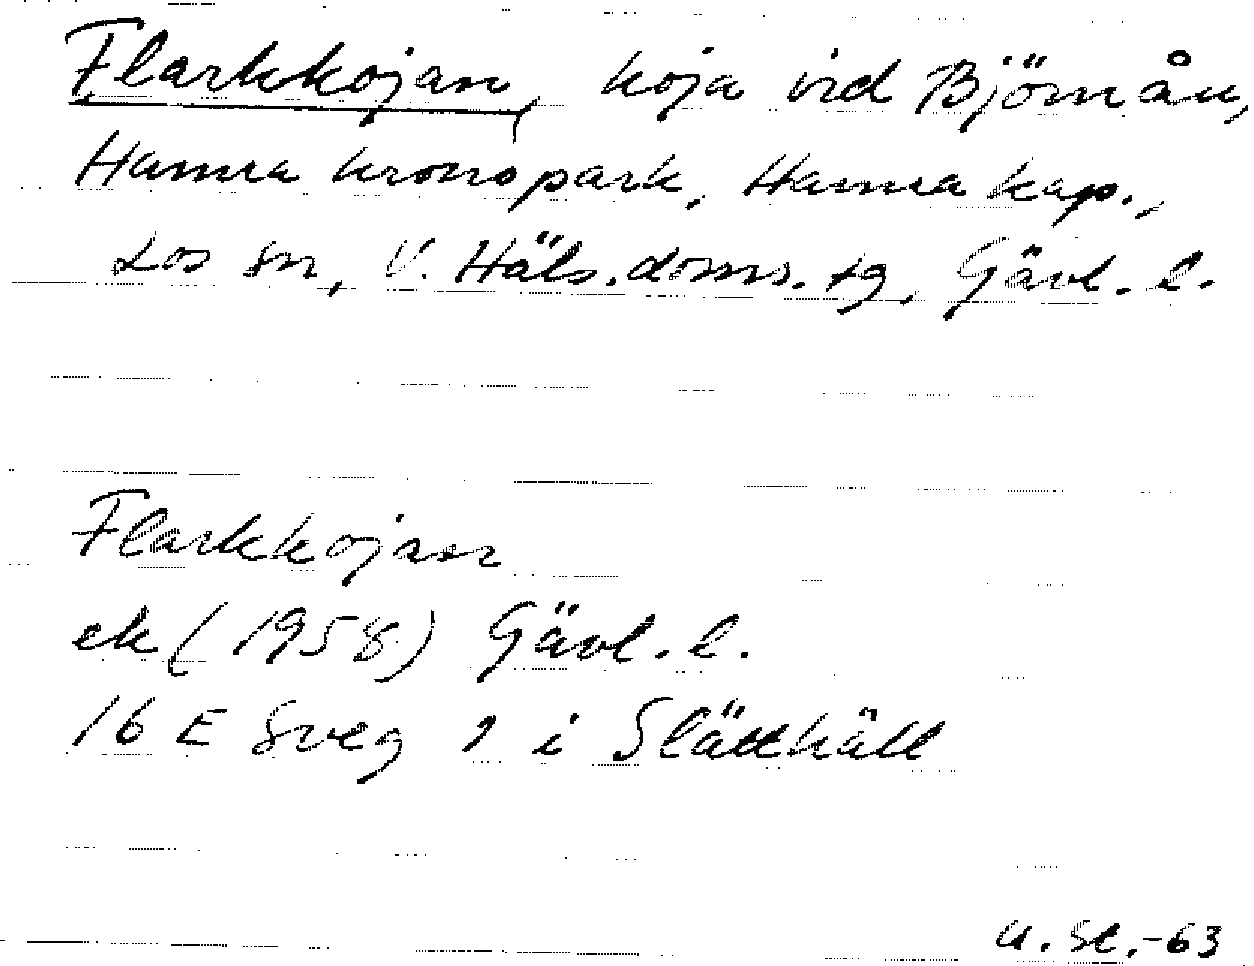 Flarkkojan, koja vid Björnån,
Hamra kronopark, Hamra kap.,
Los sn, V. Häls. doms. tg, Gävl. l.
Flarkkojan
ek (1958) Gävl. l.
16 E Sveg 1 i Slätthäll
U. St. -63